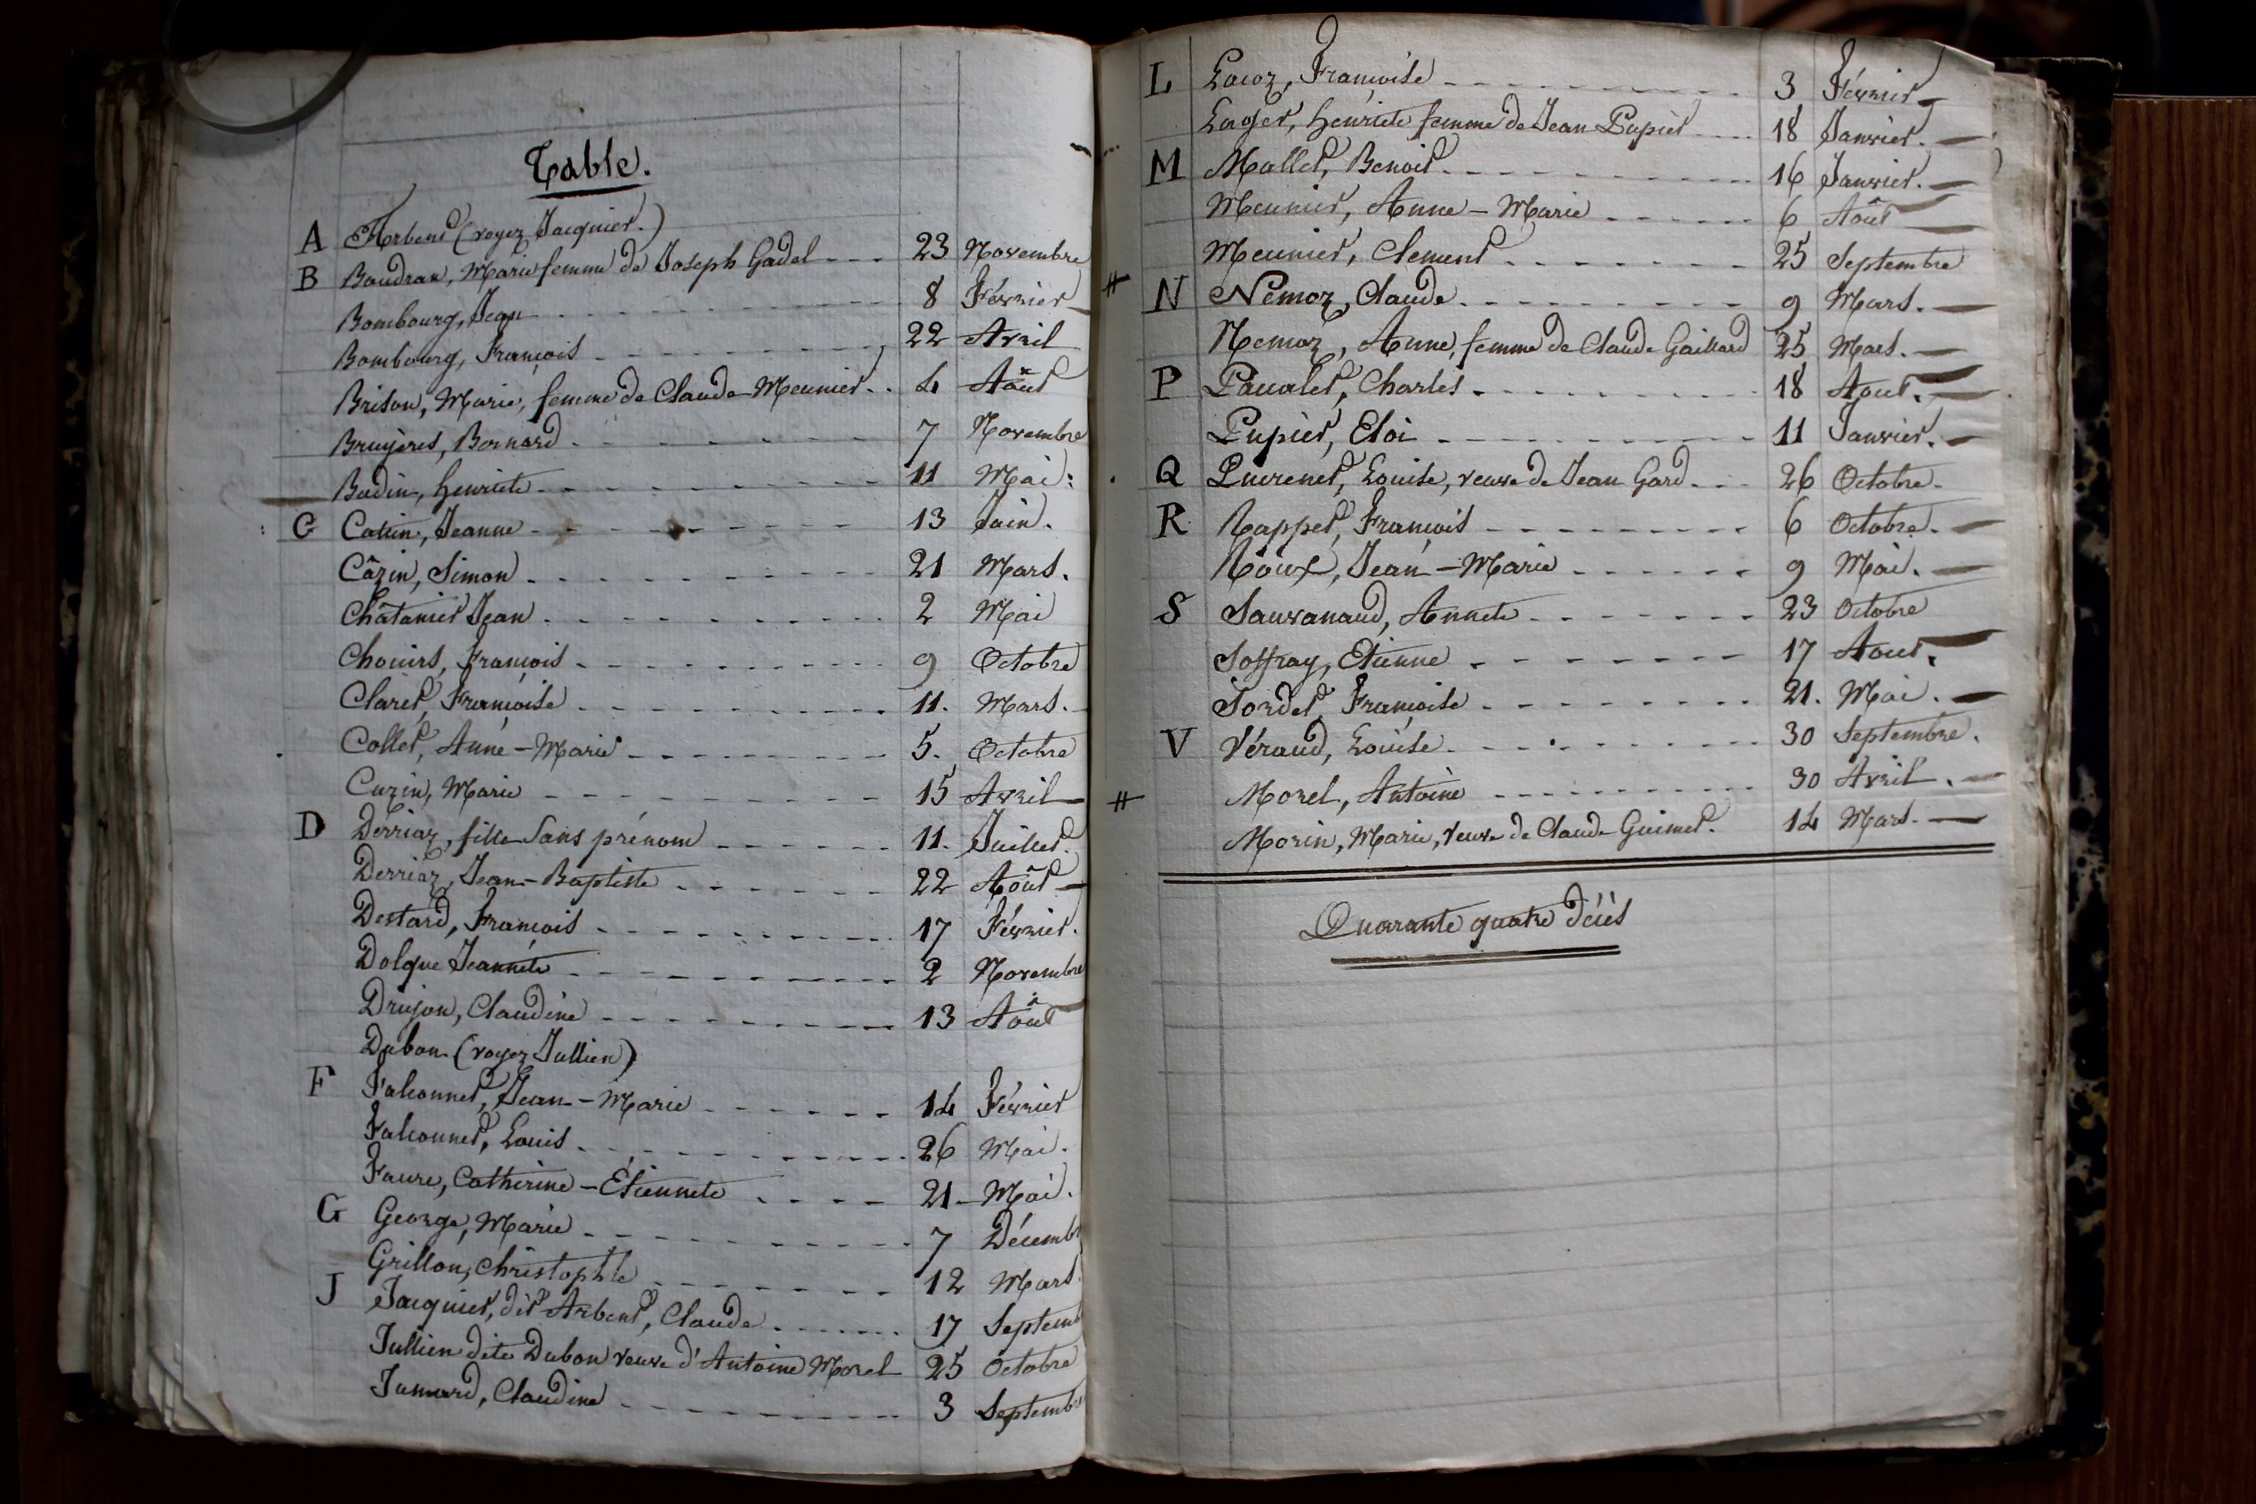 Table.
A Arbent (voyez Jacquier.)
B Baudran, Marie femme de Joseph Gadel 23 Novembre
Bombourg, Jean 8 Février
Bombourg, François 22 Avril
Brison, Marie, femme de Claude Meunier 4 Août
Bruyères, Bernard 7 Novembre
Budin, henriete 11 Mai
C Catin, Jeanne 13 Juin.
Câzin, Simon 21 Mars.
Châtanier Jean 2 Mai
Chouirs, François 9 Octobre
Claret, Françoise 11. Mars.
Collet, Anne-Marie 5. Octobre
Cuzin, Marie 15 Avril
D Derriaz, fille Sans prénom 11. Juillet.
Derriaz, Jean-Baptiste 22 Août
Destard, François 17 Février.
Dolque Jeannete 2 Novembre
Drujon, Claudine 13 Août
Dubon (voyez Jullien)
F Falconnet, Jean-Marie 14 Février
Falconnet, Louis 26 Mai.
Faure, Catherine-Etiennete 21 Mai.
G George, Marie 7 Décemb
Grillon, Christophle 12 Mars.
J Jacquier, dit Arbent, Claude 17 Septemb
Jullien dite Dubon veuve d'Antoine Morel 25 Octobre
Jumard, Claudine 3 Septemb
L Lacoz, Françoise 3 Février
Lager, henriete femme de Jean Pupier 18 Janvier.
M Mallet, Benoit 16 Janvier.
Meunier, Anne-Marie 6 Août
Meunier, Clement 25 Septembre
# N Nemoz, Claude 9 Mars.
Nemoz, Anne, femme de Claude Gaillard 25 Mars.
P Paualet, Charles 18 Aout.
Pupier, Eloi 11 Janvier.
Q Louise, veuve de Jean Gard 26 Octobre
R Rappet, François 6 Octobre.
Roux, Jean-Marie 9 Mai.
S Sauvanaud, Annete 23 Octobre
Soffray, Etienne 17 Aout.
Sordet Françoise 21. Mai.
V Véraud, Louise 30 Septembre.
# Morel, Antoine 30 Avril.
Morin, Marie, veuve de Claude Guimet. 14 Mars.
Quarante quatre décès